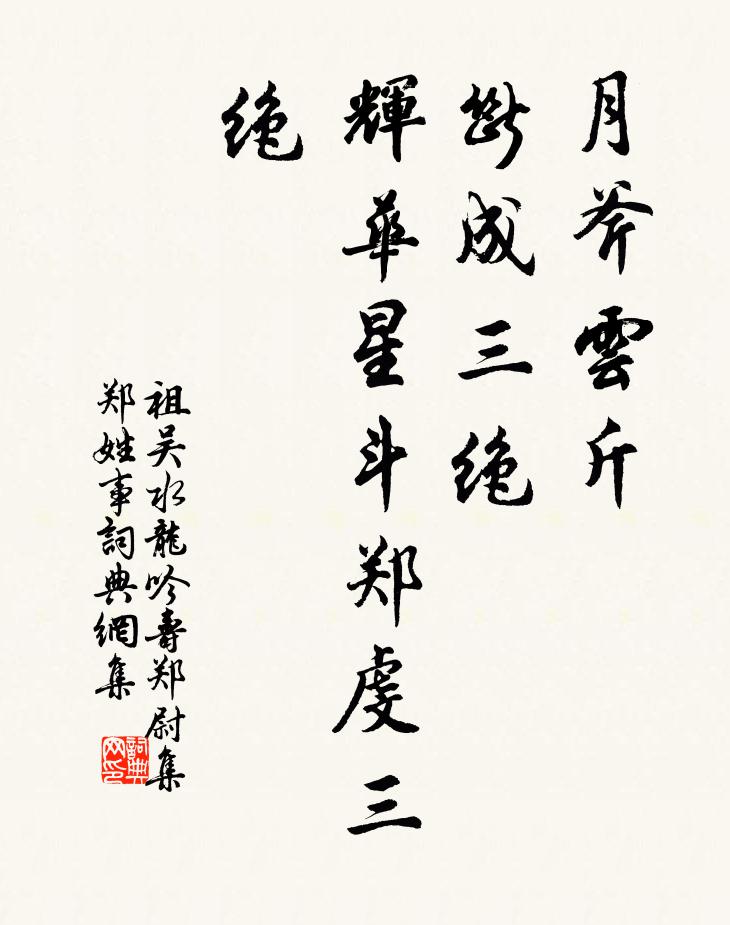 月斧雲斤
斷成三绝
輝華星斗郑虔三
绝
祖吴水龍吟壽郑尉集
郑姓事詞典網集
詞典
网印